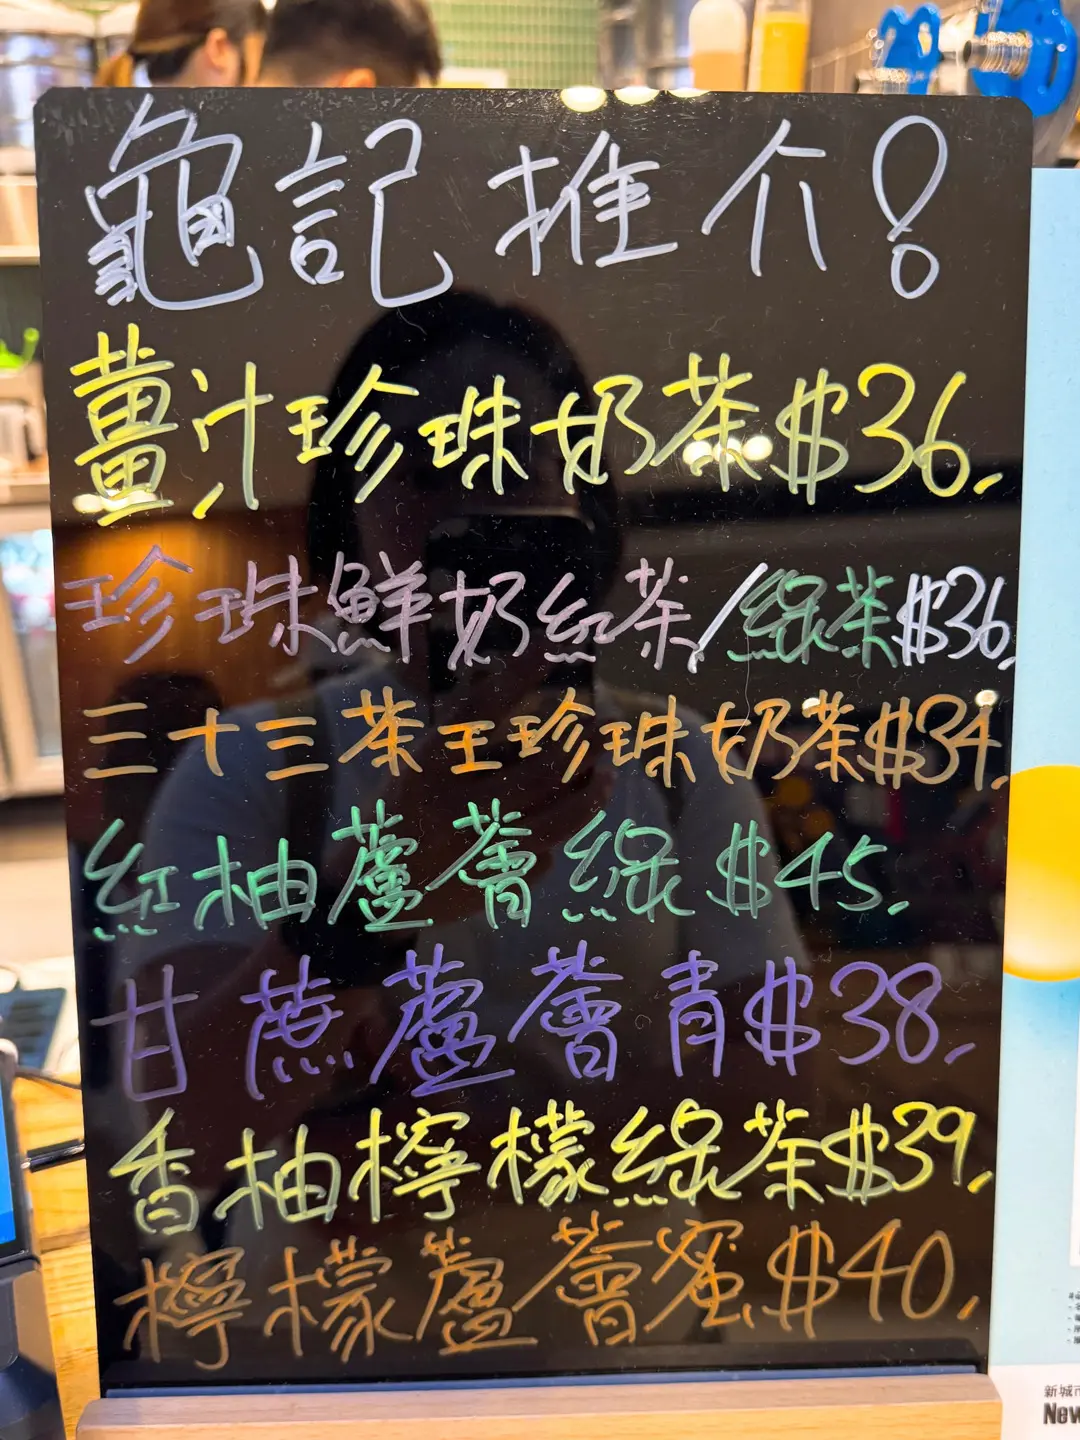 龜記推介!
薑汁珍珠奶茶$36.
珍珠鮮奶紅茶/綠茶$36.
三十三茶王珍珠奶茶$34.
紅柚蘆薈綠 $45.
甘蔗蘆薈青$38.
香柚檸檬綠茶$39.
檸檬蘆薈蜜$40.
新城市
New